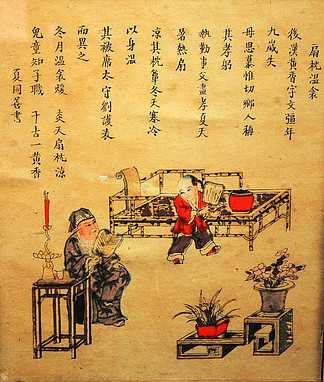 扇枕溫衾
後漢黃香字文彊年
九歲失
母思慕惟切鄉人稱
其孝躬
執勤事父盡孝夏天
暑熱扇
涼其枕簟冬天寒冷
以身溫
其被席太守劉護表
而異之
冬月溫衾煖 炎天扇枕涼
兒童知子職 千古一黃香
夏同善書